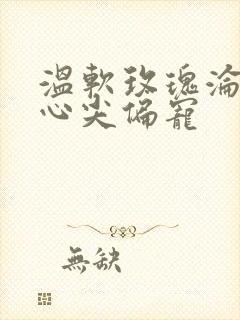 溫軟玫瑰淪
心尖偏寵
無缺